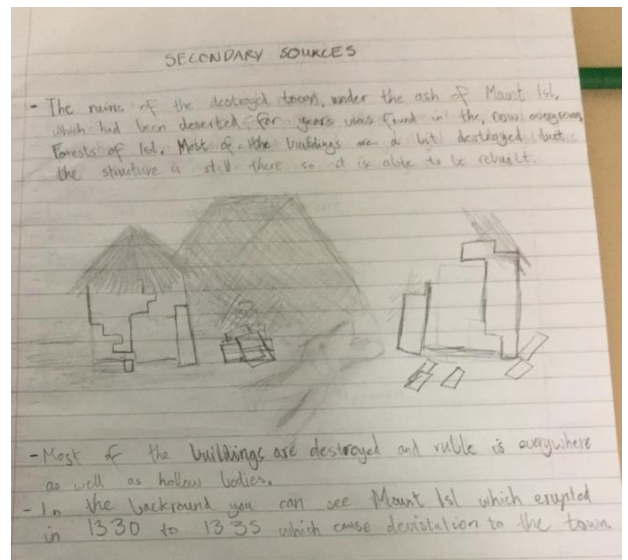 SECONDARY SOURCES
- The ruins of the destroyed town, under the ash of Mount Isl,
which had been deserted for years was found in the, now overgrown,
Forests of Isl. Most of the buildings are a bit destroyed but
the structure is still there so it is able to be rebuilt.
- Most of the buildings are destroyed and ruble is everywhere
as well as hollow bodies.
- In the backround you can see Mount Isl which erupted
in 1330 to 1335 which cause devistation to the town.